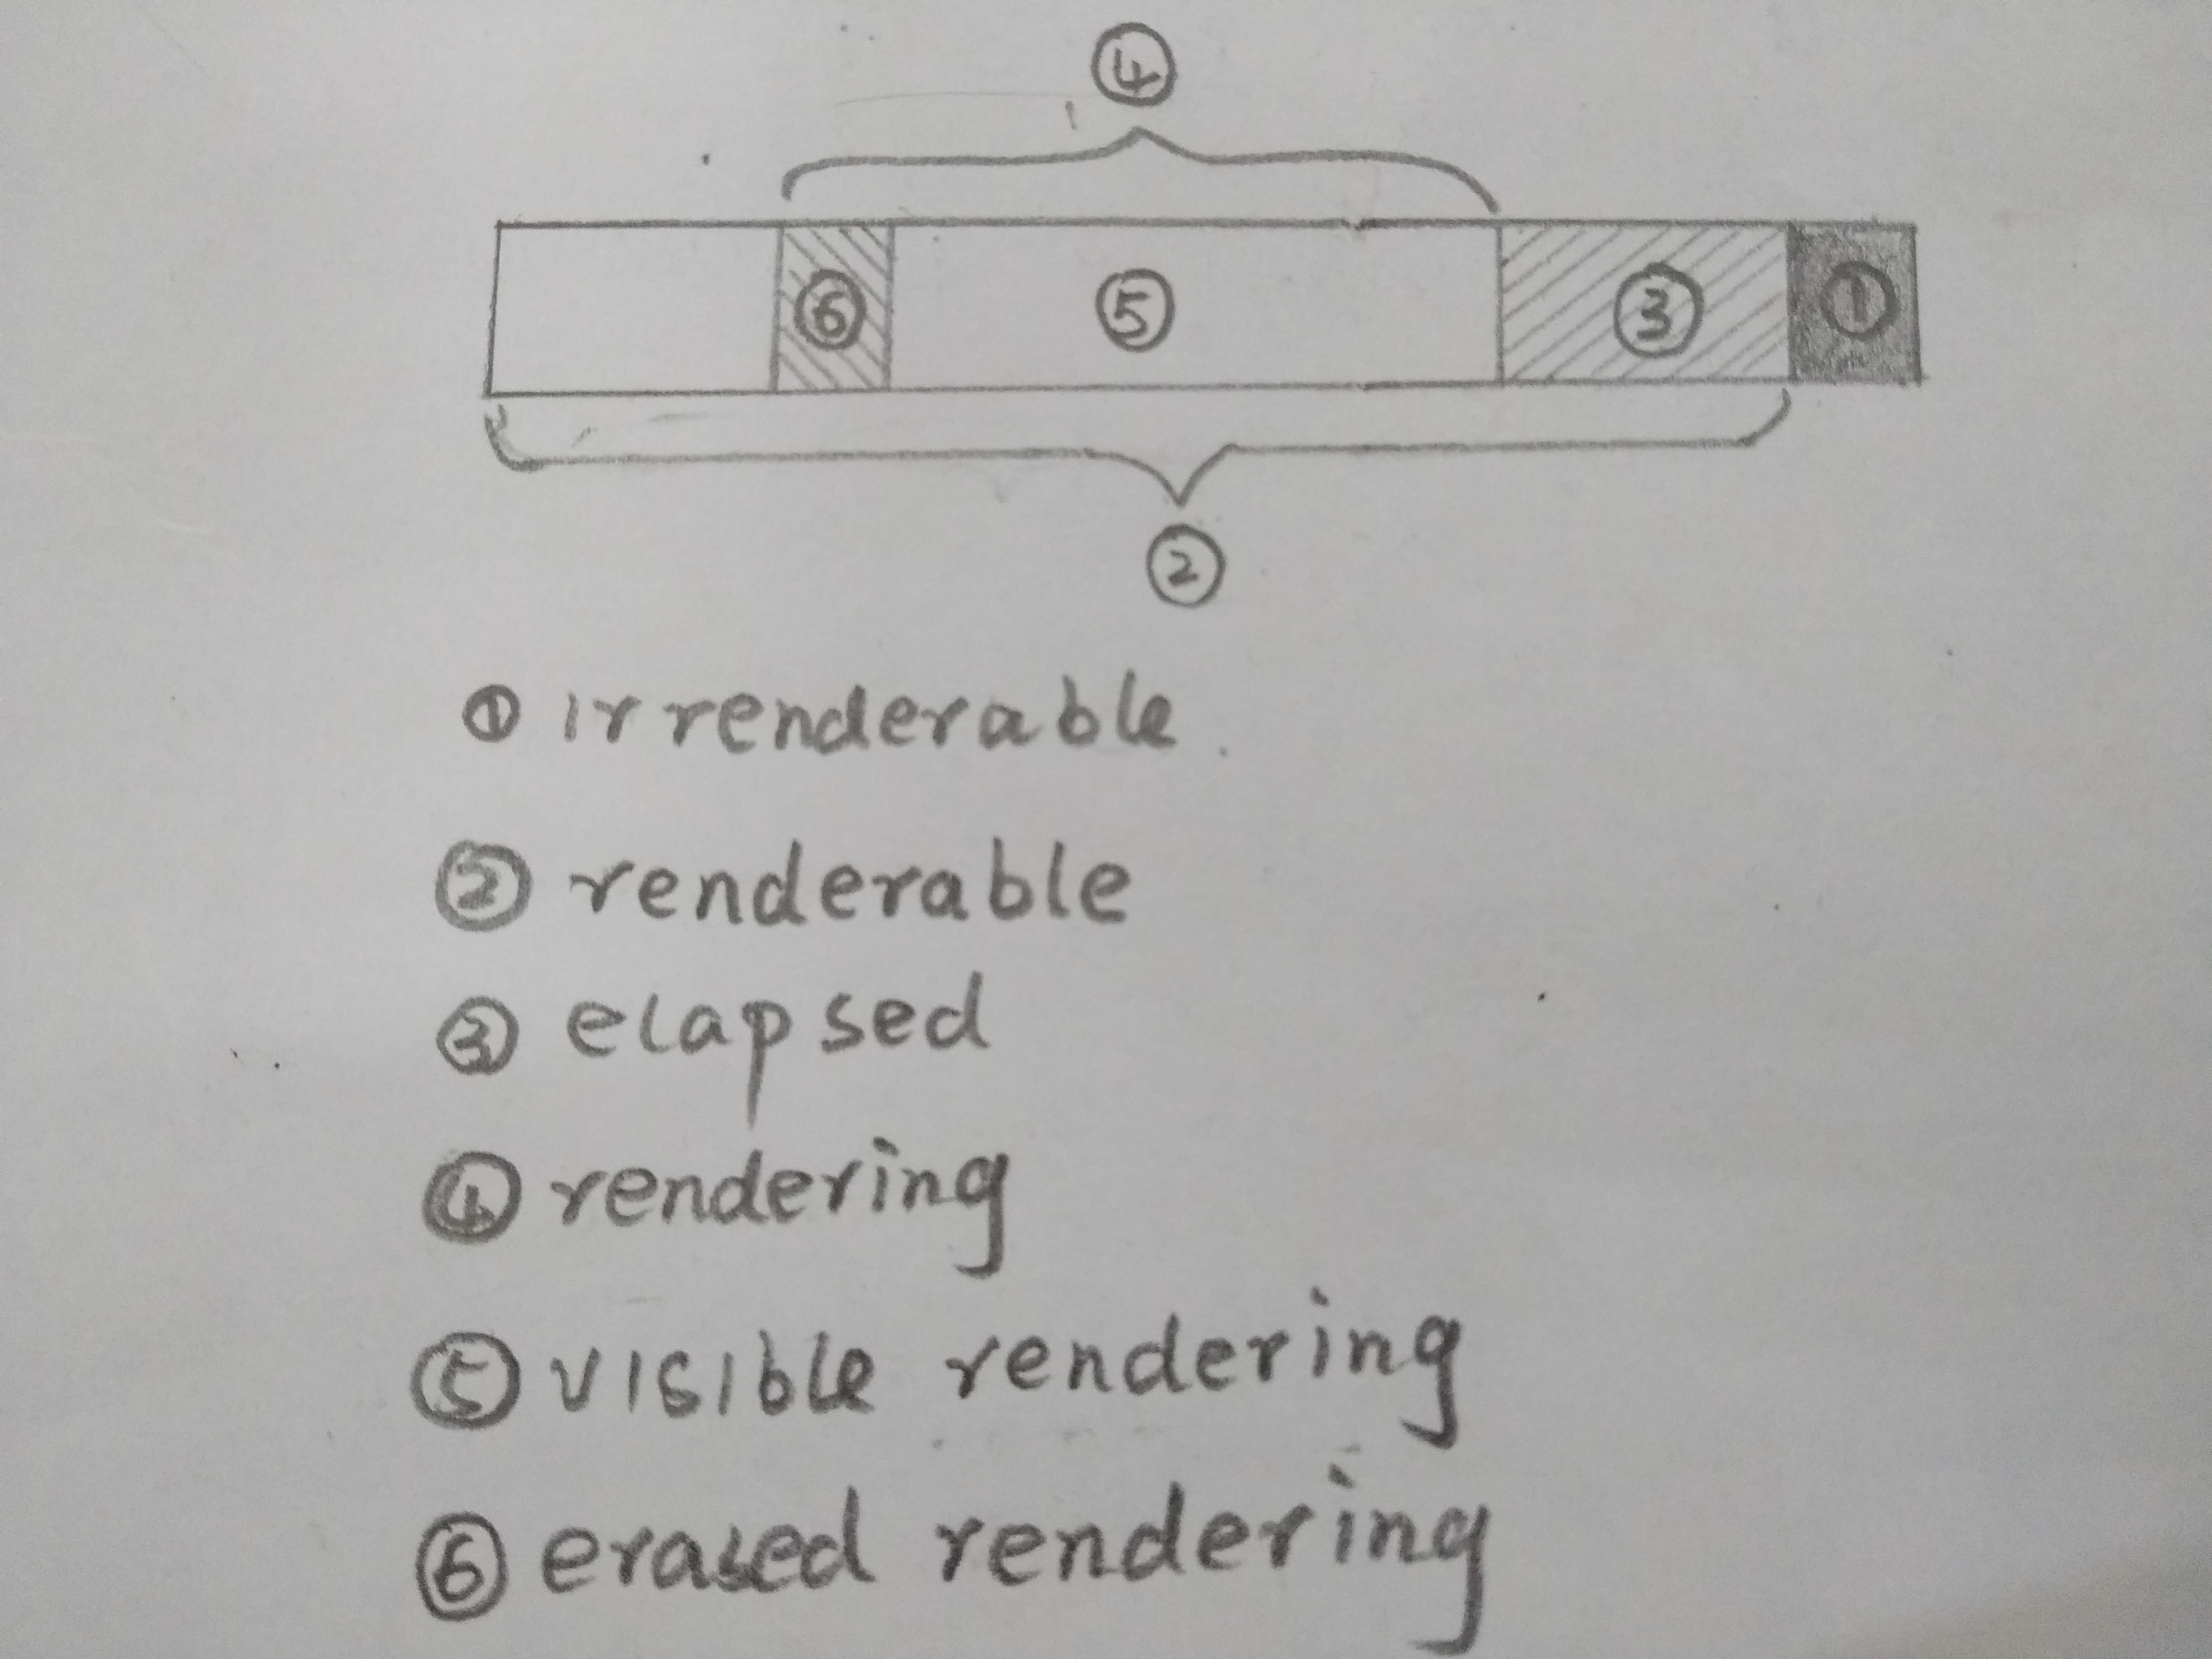 ④
⑥ ⑤ ③ ①
②
① irrenderable
② renderable
③ elapsed
④ rendering
⑤ visible rendering
⑥ erased rendering